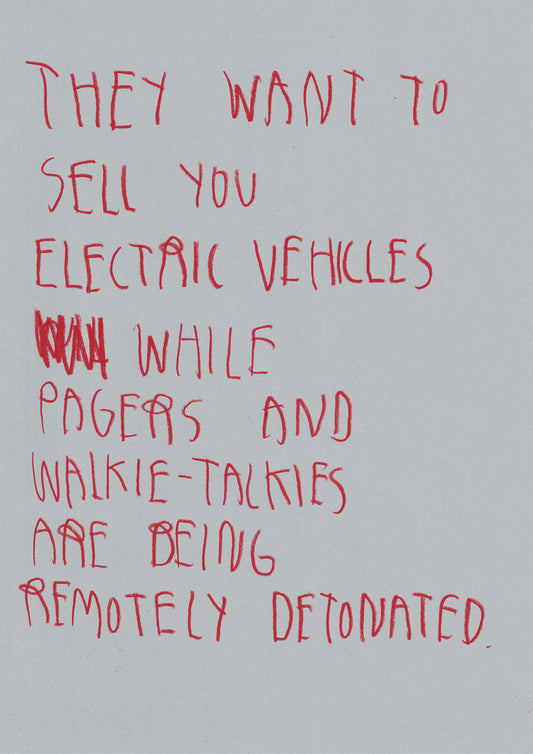 THEY WANT TO
SELL YOU
ELECTRIC VEHICLES
WHILE
PAGERS AND
WALKIE-TALKIES
ARE BEING
REMOTELY DETONATED.